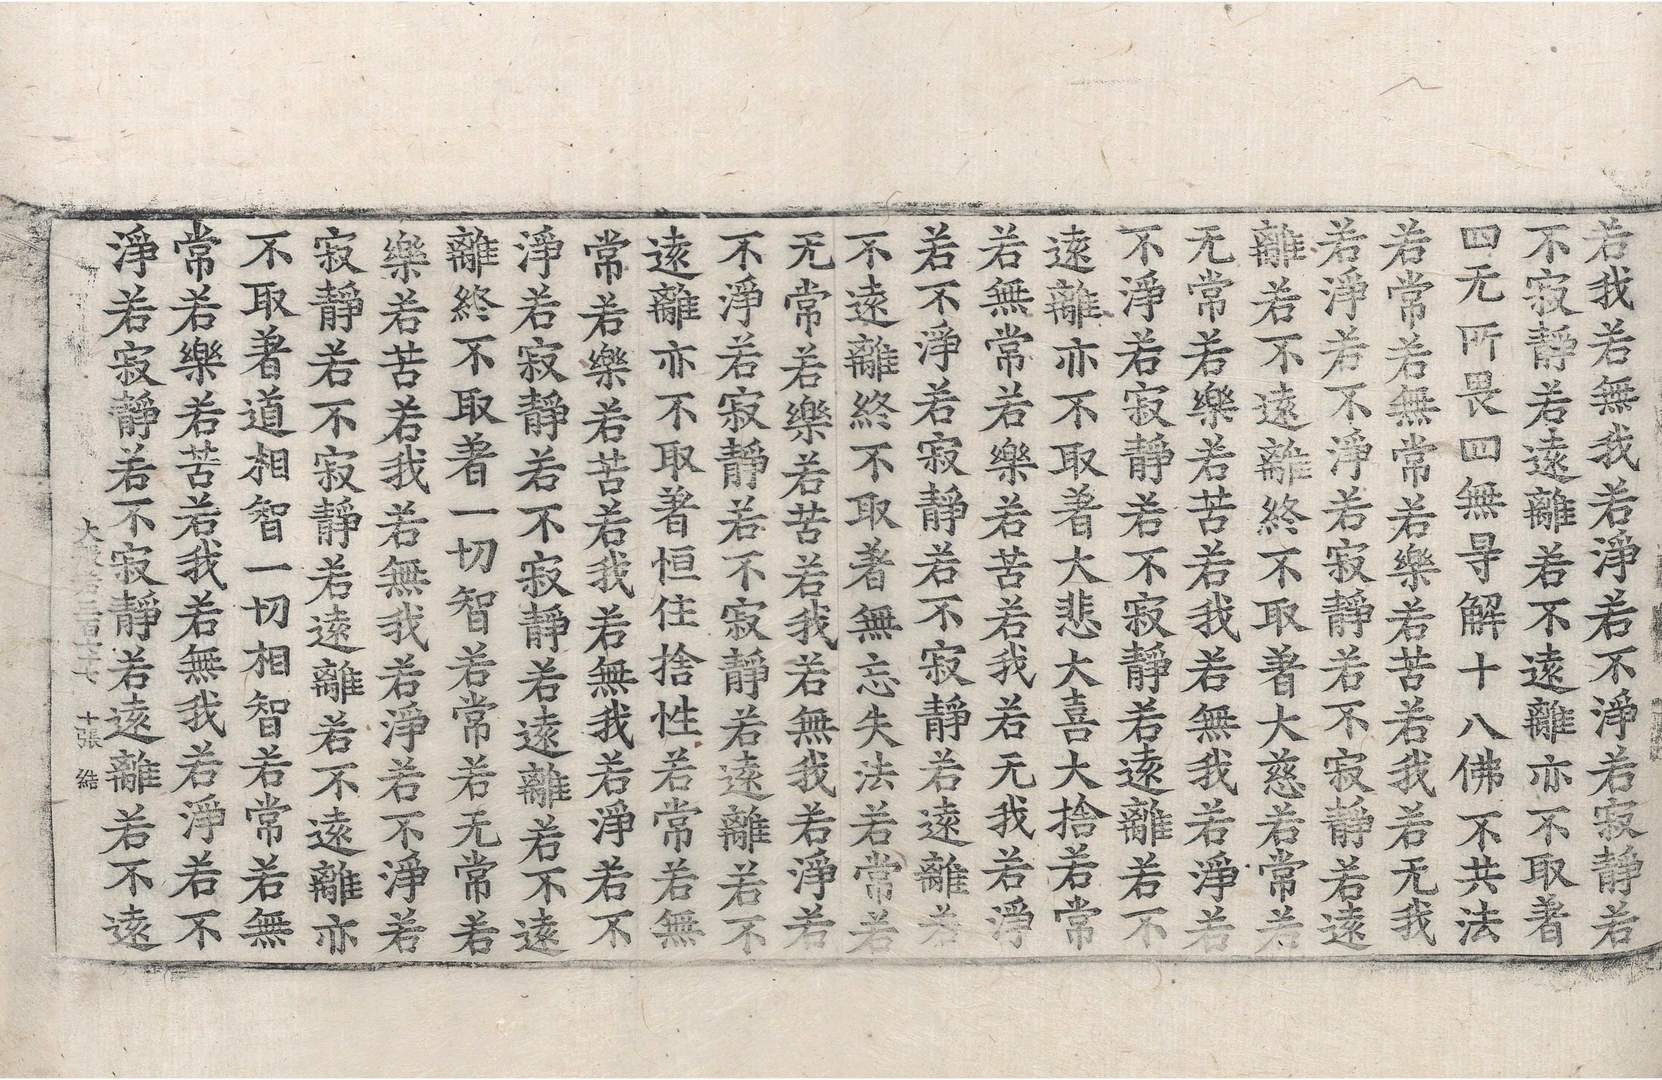 若我若無我若淨若不淨若寂靜若
不寂靜若遠離若不遠離亦不取著
四无所畏四無㝵解十八佛不共法
若常若無常若樂若苦若我若无我
若淨若不淨若寂靜若不寂靜若遠
離若不遠離終不取著大慈若常若
无常若樂若苦若我若無我若淨若
不淨若寂靜若不寂靜若遠離若不
遠離亦不取著大悲大喜大捨若常
若無常若樂若苦若我若无我若淨
若不淨若寂靜若不寂靜若遠離若
不遠離終不取著無忘失法若常若
无常若樂若苦若我若無我若淨若
不淨若寂靜若不寂靜若遠離若不
遠離亦不取著恒住捨性若常若無
常若樂若苦若我若無我若淨若不
淨若寂靜若不寂靜若遠離若不遠
離終不取著一切智若常若无常若
樂若苦若我若無我若淨若不淨若
寂靜若不寂靜若遠離若不遠離亦
不取著道相智一切相智若常若無
常若樂若苦若我若無我若淨若不
淨若寂靜若不寂靜若遠離若不遠
大般若 十張 結